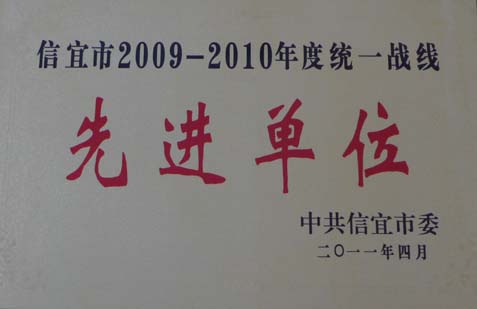 信宜市2009-2010年度统一战线
先进单位
中共信宜市委
二〇一一年四月